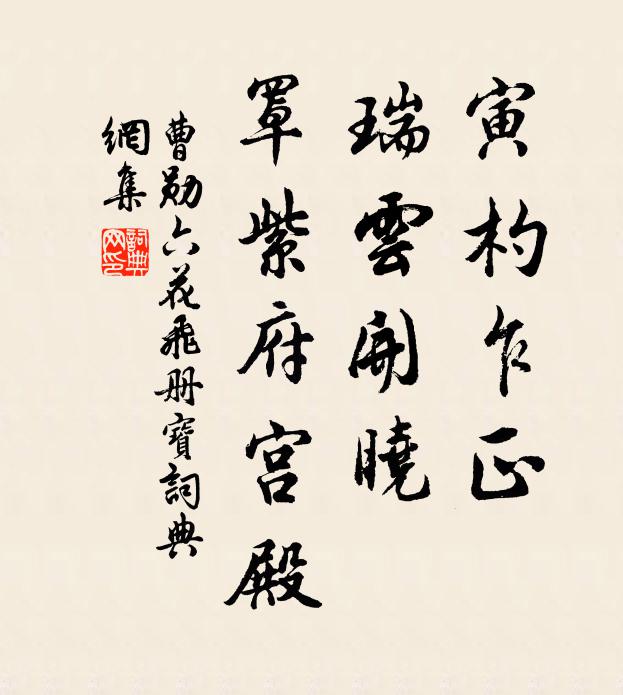 寅杓乍正
瑞雲開曉
罩紫府宫殿
曹勛六花飛册寶詞典
網集
詞典
网印